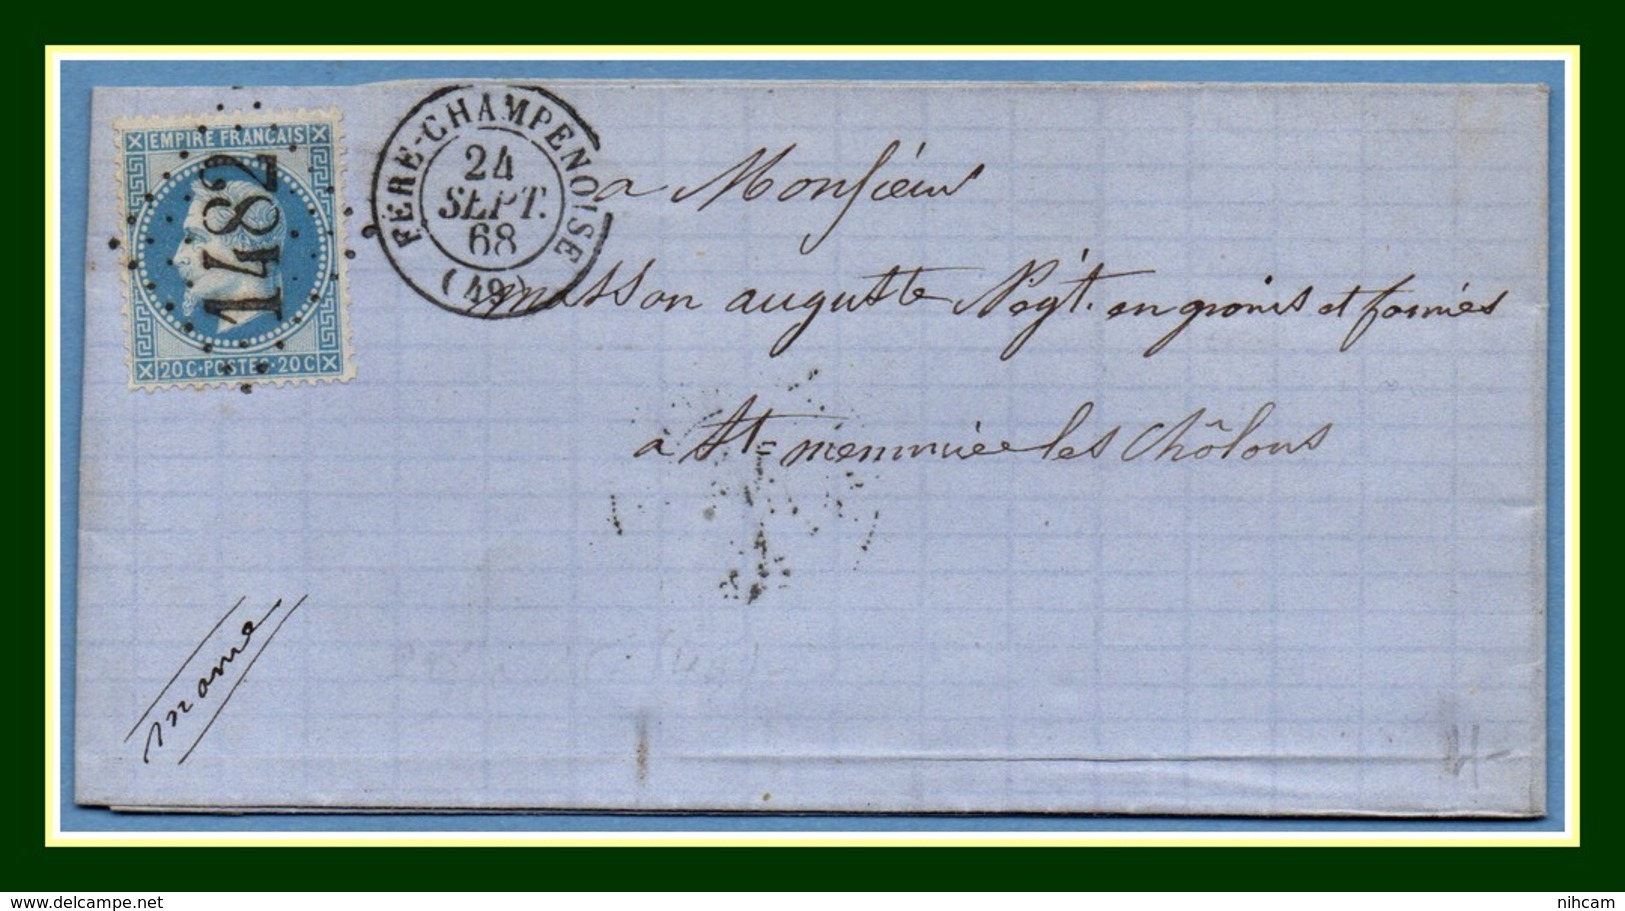 EMPIRE FRANÇAIS
1482
20 C · POSTES · 20 C
FÈRE-CHAMPENOISE
24
SEPT.
68
(49)
a Monsieur
masson auguste Négt. en grains et farines
a St= memmie les Châlons
marne
H-
www.delcampe.net
nihcam